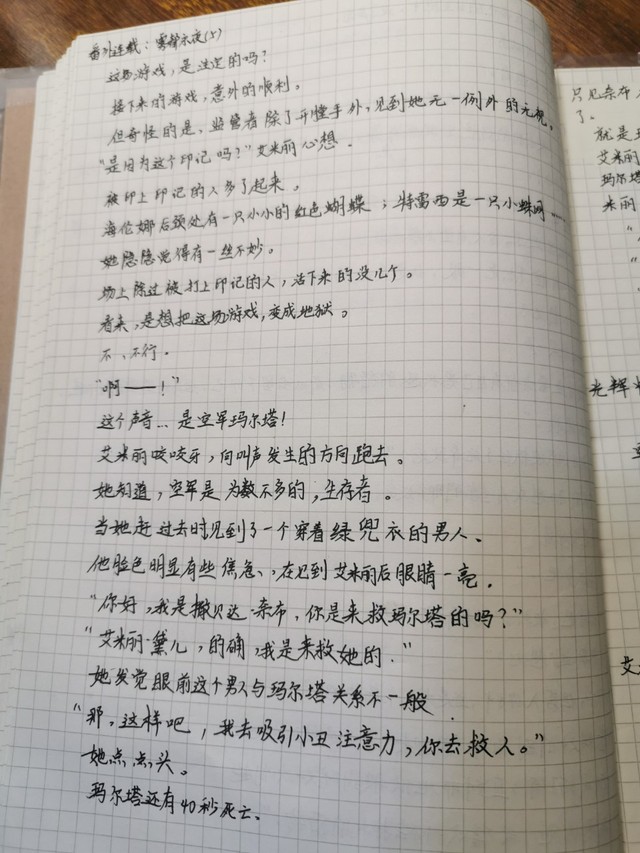 番外连载：雾都永夜(5)
这场游戏，是注定的吗？
接下来的游戏，意外的顺利。
但奇怪的是，监管者除了开膛手外，见到她无一例外的无视，
“是因为这个印记吗？”艾米丽心想．
被印上印记的人多了起来。
海伦娜后颈处有一只小小的红色蝴蝶；特雷西是一只小蛛网……
她隐隐觉得有一丝不妙。
场上除过被打上印记的人，活下来的没几个。
看来，是想把这场游戏，变成地狱。
不、不行．
“啊——！”
这个声音…是空军玛尔塔！
艾米丽咬咬牙，向叫声发生的方向跑去。
她知道，空军是为数不多的，生存者。
当她赶过去时见到了一个穿着绿兜衣的男人、
他脸色明显有些焦急、，在见到艾米丽后眼睛一亮．
“你好，我是撒贝达·奈布，你是来救玛尔塔的吗？”
“艾米丽·黛儿，的确，我是来救她的．”
她发觉眼前这个男人与玛尔塔关系不一般．
“那，这样吧，我去吸引小丑注意力，你去救人。”
她点点头。
玛尔塔还有40秒死亡、
只见奈布
了。
就是玛
艾米丽
玛尔塔
米丽
光辉
艾